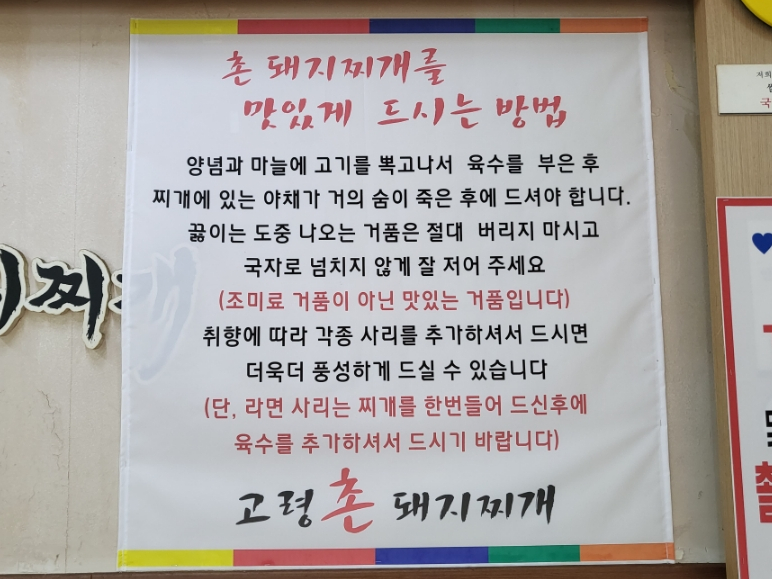 촌 돼지찌개를
맛있게 드시는 방법
양념과 마늘에 고기를 뽁고나서 육수를 부은 후
찌개에 있는 야채가 거의 숨이 죽은 후에 드셔야 합니다.
끓이는 도중 나오는 거품은 절대 버리지 마시고
국자로 넘치지 않게 잘 저어 주세요
(조미료 거품이 아닌 맛있는 거품입니다)
취향에 따라 각종 사리를 추가하셔서 드시면
더욱더 풍성하게 드실 수 있습니다
(단, 라면 사리는 찌개를 한번들어 드신후에
육수를 추가하셔서 드시기 바랍니다)
고령촌 돼지찌개
찌개
저희